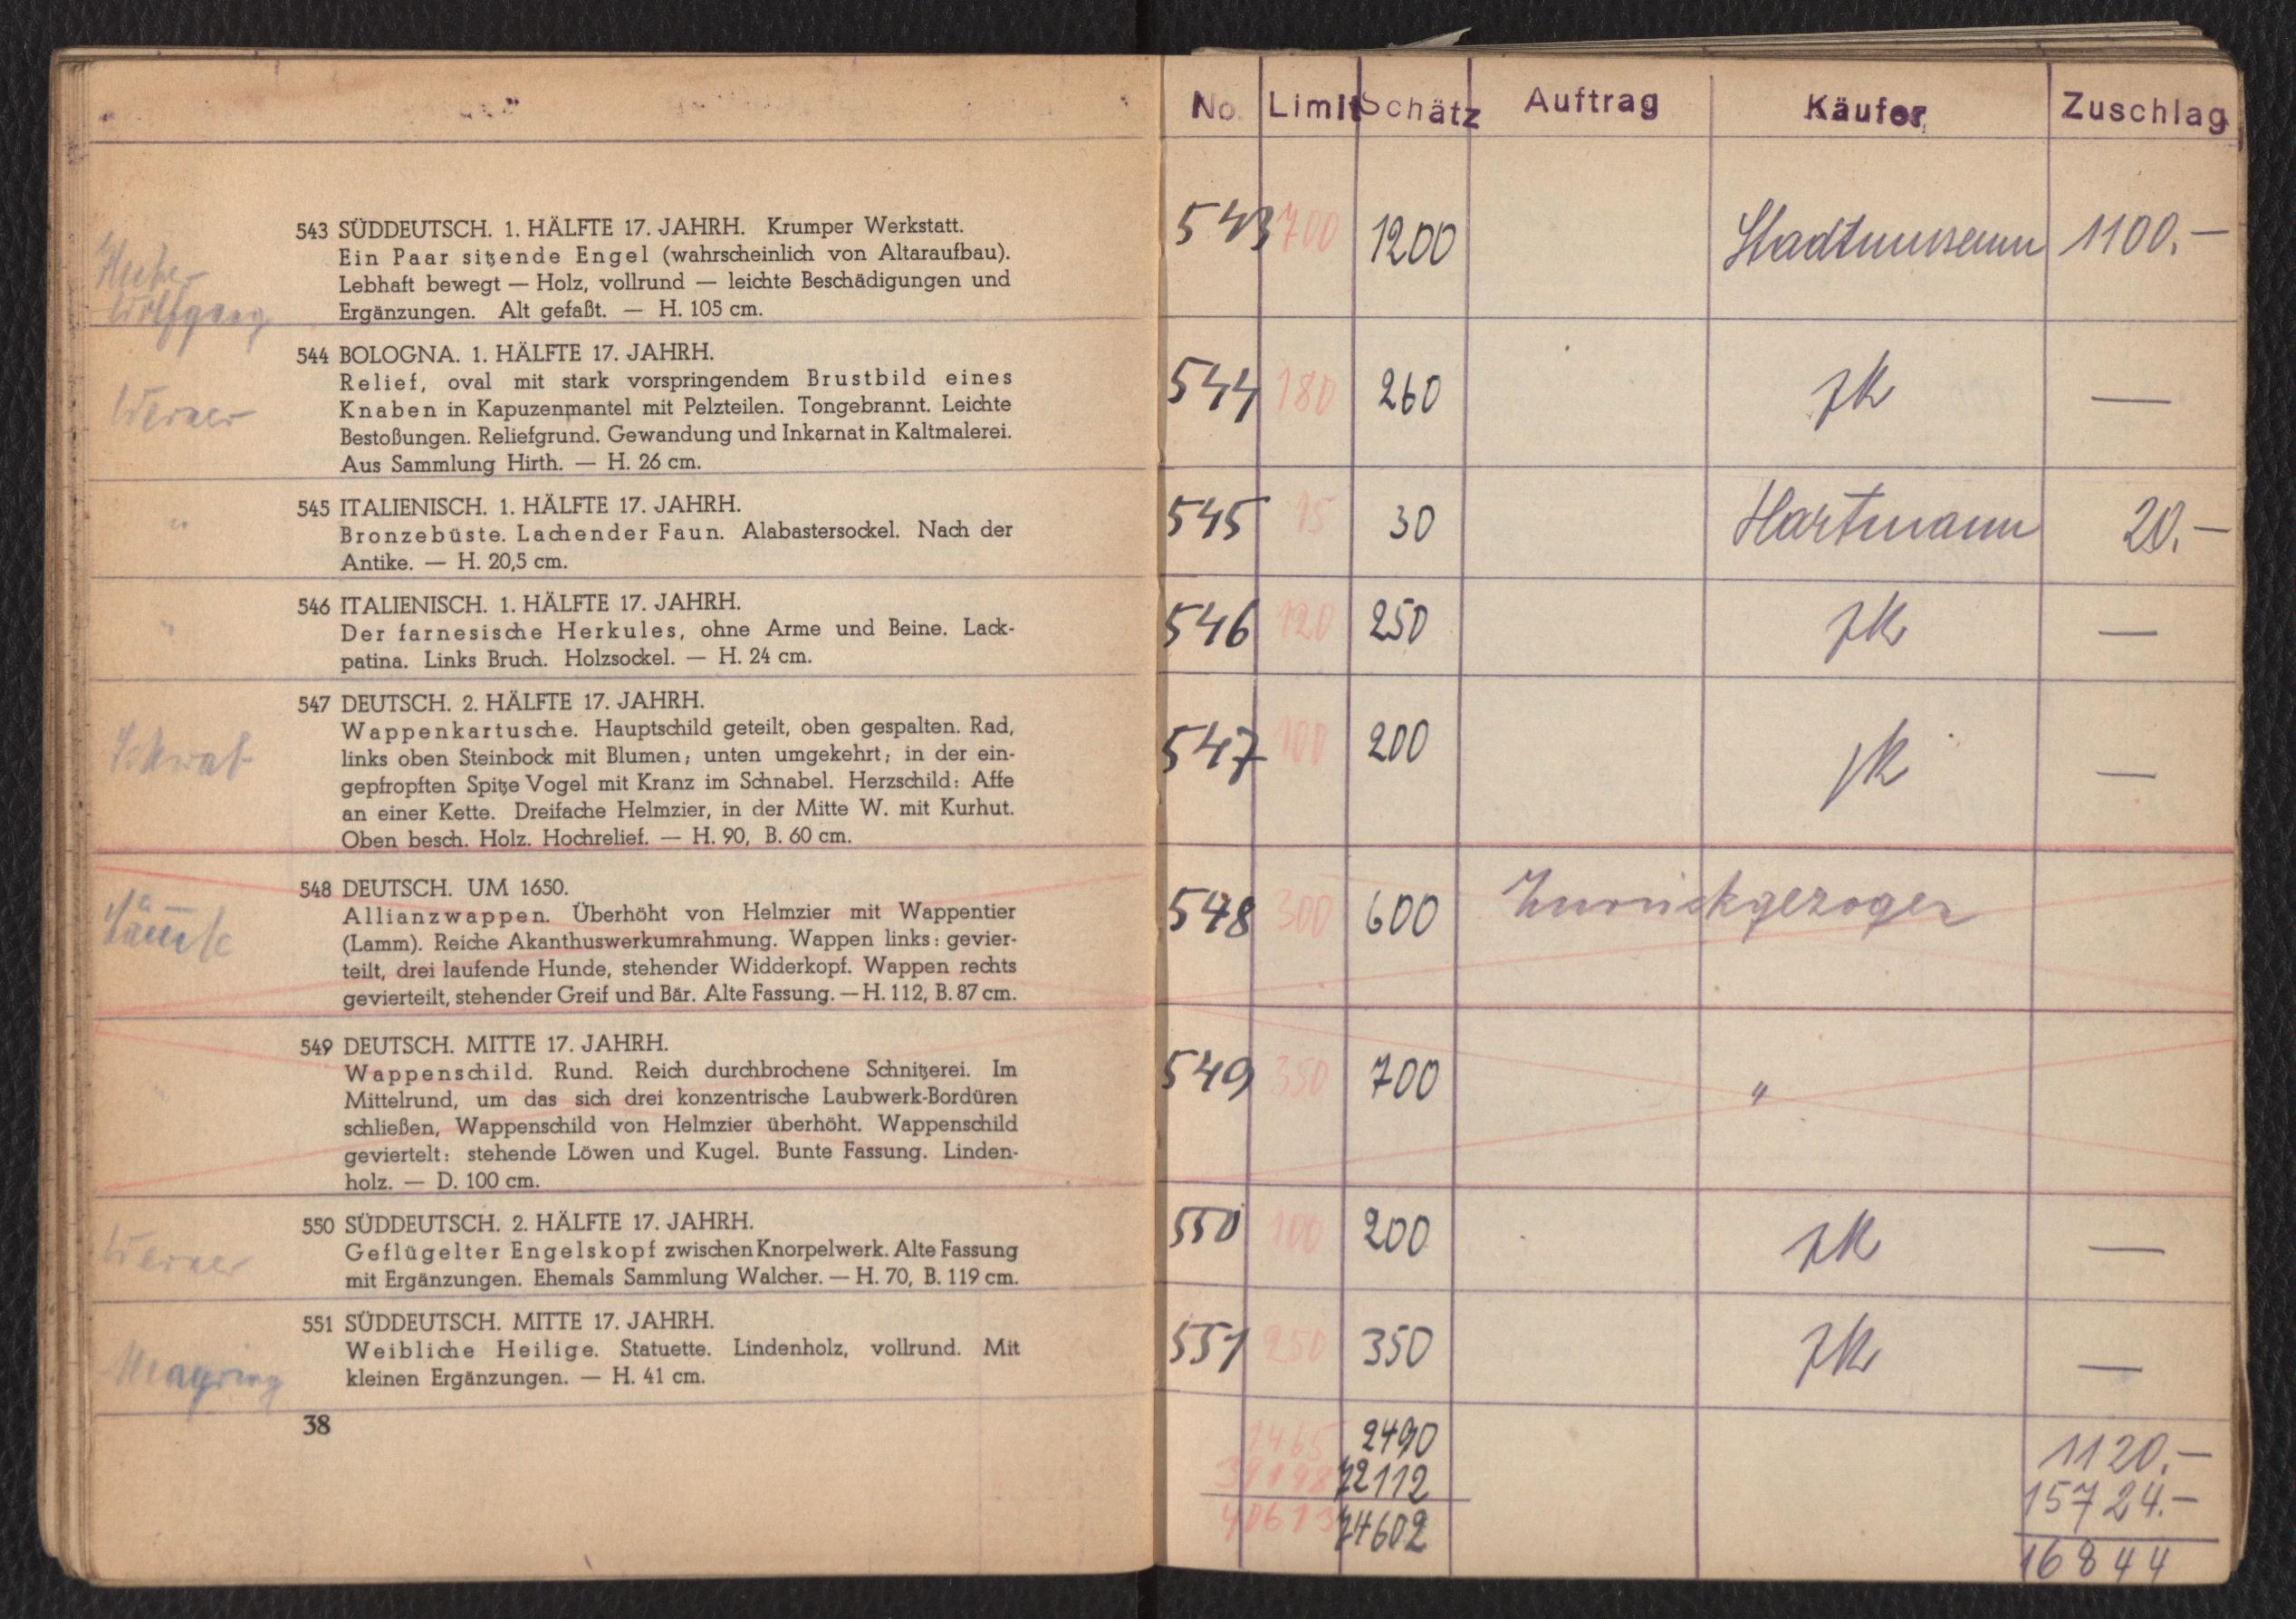 543 SÜDDEUTSCH. 1. HÄLFTE 17. JAHRH. Krumper Werkstatt.
Ein Paar sitzende Engel (wahrscheinlich von Altaraufbau).
Lebhaft bewegt — Holz, vollrund — leichte Beschädigungen und
Ergänzungen. Alt gefaßt. — H. 105 cm.
Huber
Wolfgang
544 BOLOGNA. 1. HÄLFTE 17. JAHRH.
Relief, oval mit stark vorspringendem Brustbild eines
Knaben in Kapuzenmantel mit Pelzteilen. Tongebrannt. Leichte
Bestoßungen. Reliefgrund. Gewandung und Inkarnat in Kaltmalerei.
Aus Sammlung Hirth. — H. 26 cm.
Werner
545 ITALIENISCH. 1. HÄLFTE 17. JAHRH.
Bronzebüste. Lachender Faun. Alabastersockel. Nach der
Antike. — H. 20,5 cm.
"
546 ITALIENISCH. 1. HÄLFTE 17. JAHRH.
Der farnesische Herkules, ohne Arme und Beine. Lack-
patina. Links Bruch. Holzsockel. — H. 24 cm.
"
547 DEUTSCH. 2. HÄLFTE 17. JAHRH.
Wappenkartusche. Hauptschild geteilt, oben gespalten. Rad,
links oben Steinbock mit Blumen; unten umgekehrt; in der ein-
gepfropften Spitze Vogel mit Kranz im Schnabel. Herzschild: Affe
an einer Kette. Dreifache Helmzier, in der Mitte W. mit Kurhut.
Oben besch. Holz. Hochrelief. — H. 90, B. 60 cm.
Schwab
548 DEUTSCH. UM 1650.
Allianzwappen. Überhöht von Helmzier mit Wappentier
(Lamm). Reiche Akanthuswerkumrahmung. Wappen links: gevier-
teilt, drei laufende Hunde, stehender Widderkopf. Wappen rechts
gevierteilt, stehender Greif und Bär. Alte Fassung. — H. 112, B. 87 cm.
549 DEUTSCH. MITTE 17. JAHRH.
Wappenschild. Rund. Reich durchbrochene Schnitzerei. Im
Mittelrund, um das sich drei konzentrische Laubwerk-Bordüren
schließen, Wappenschild von Helmzier überhöht. Wappenschild
geviertelt: stehende Löwen und Kugel. Bunte Fassung. Linden-
holz. — D. 100 cm.
"
550 SÜDDEUTSCH. 2. HÄLFTE 17. JAHRH.
Geflügelter Engelskopf zwischen Knorpelwerk. Alte Fassung
mit Ergänzungen. Ehemals Sammlung Walcher. — H. 70, B. 119 cm.
Werner
551 SÜDDEUTSCH. MITTE 17. JAHRH.
Weibliche Heilige. Statuette. Lindenholz, vollrund. Mit
kleinen Ergänzungen. — H. 41 cm.
38
No. Limit Schätz Auftrag Käufer Zuschlag
543 700 1200 Stadtmuseum 1100.—
544 180 260 zk —
545 15 30 Hartmann 20.—
546 120 250 zk —
547 100 200 zk —
548 300 600 Zurückgezogen
549 350 700 "
550 100 200 zk —
551 250 350 zk —
1465 2490 1120.—
39198 72112 15724.—
40613 74602 16844